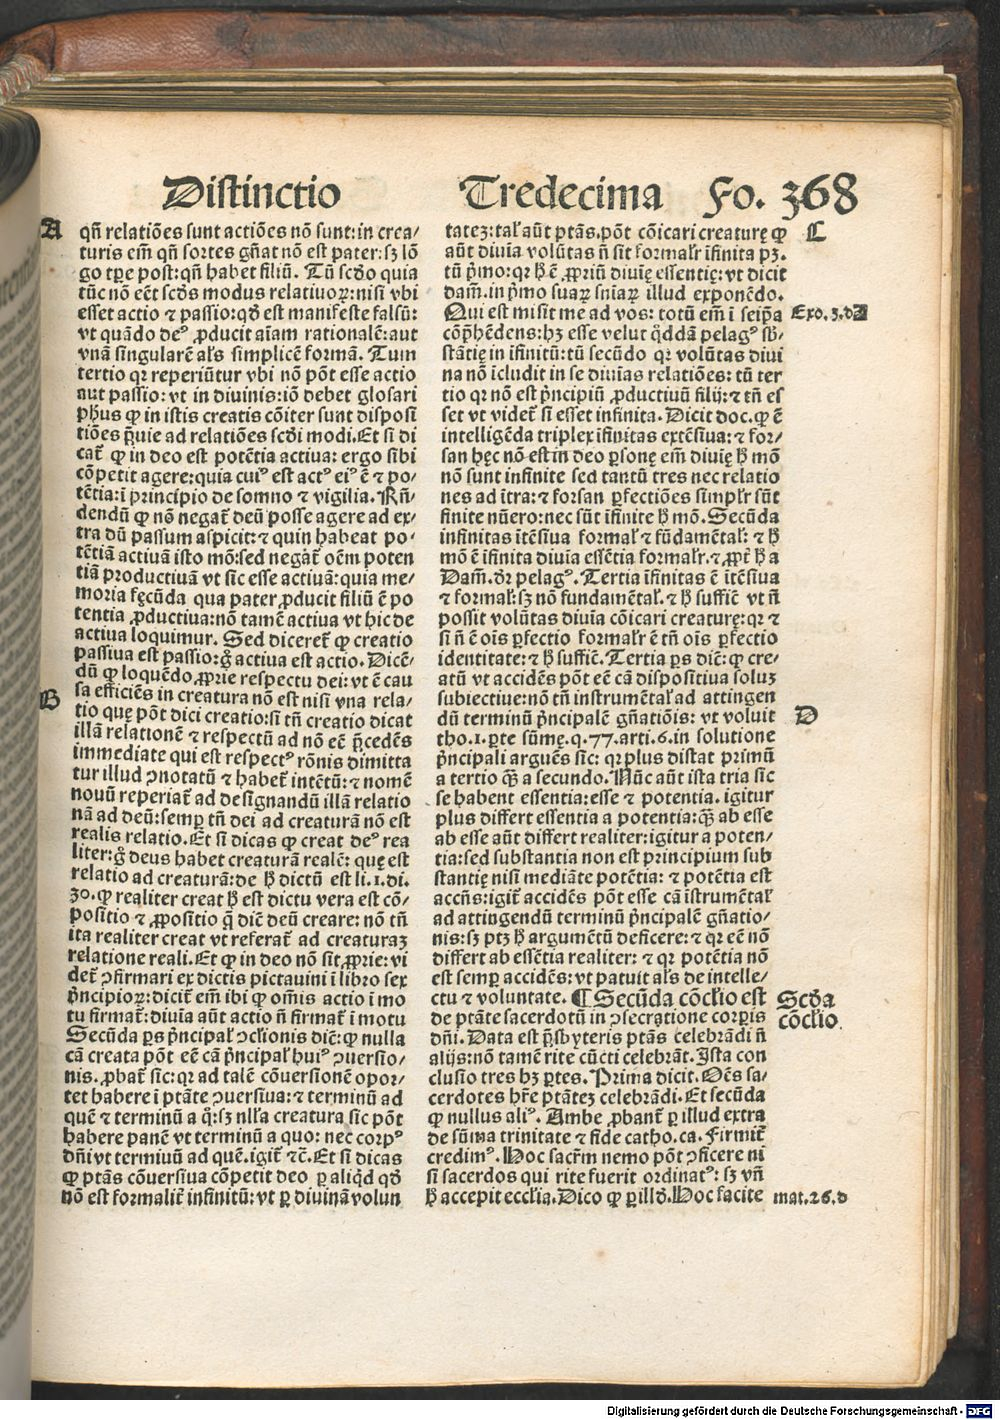 Distinctio
Tredecima Fo. 368
A
qñ relatiões sunt actiões nõ sunt: in crea⸗
turis em̃ qñ sortes gñat nõ est pater: sꝫ lõ
go tꝑe post: qñ habet filiũ. Tũ scḋo quia
tũc nõ eẽt scḋs modus relatiuoꝝ: nisi vbi
esset actio ⁊ passio: qḋ est manifeste falsũ:
vt quãdo deꝰ ꝓducit aĩam rationalẽ: aut
vnã singularẽ al̃s simplicẽ formã. Tum
tertio qꝛ reperiũtur vbi nõ põt esse actio
aut passio: vt in diuinis: iõ debet glosari
ph̃us ꝙ in istis creatis cõiter sunt disposi
tiões p̃uie ad relatiões scḋi modi. Et si di
cat̃ ꝙ in deo est potẽtia actiua: ergo sibi
cõpetit agere: quia cuiꝰ est actꝰ eiꝰ ẽ ⁊ po⸗
tẽtia: ĩ principio de somno ⁊ vigilia. Rñ⸗
dendũ ꝙ nõ negat̃ deũ posse agere ad ex⸗
tra dũ passum aspicit: ⁊ quin habeat po⸗
tẽtiã actiuã isto mõ: sed negat̃ oẽm poten
tiã productiuã vt sic esse actiuã: quia me⸗
moria fęcũda qua pater ꝓducit filiũ ẽ po
tentia ꝓductiua: nõ tamẽ actiua vt hic de
actiua loquimur. Sed diceret̃ ꝙ creatio
passiua est passio: g̊ actiua est actio. Dicẽ⸗
dũ ꝙ loquẽdo ꝓprie respectu dei: vt ẽ cau
B
sa efficiẽs in creatura nõ est nisi vna rela⸗
tio quę põt dici creatio: si tñ creatio dicat
illã relationẽ ⁊ respectũ ad nõ eẽ p̃cedẽs
immediate qui est respectꝰ rõnis dimitta
tur illud ꝯnotatũ ⁊ habet̃ intẽtũ: ⁊ nomẽ
nouũ reperiat̃ ad designandũ illã relatio
nã ad deũ: semꝑ tñ dei ad creaturã nõ est
realis relatio. Et si dicas ꝙ creat deꝰ rea
liter: g̊ deus habet creaturã realẽ: quę est
relatio ad creaturã: de ħ dictũ est li. 1. di.
30. ꝙ realiter creat ħ est dictu vera est cõ⸗
positio ⁊ ꝓpositio q̃ diẽ deũ creare: nõ tñ
ita realiter creat vt referat̃ ad creaturaꝫ
relatione reali. Et ꝙ in deo nõ sit ꝓprie: vi
det̃ ꝯfirmari ex dictis pictauini ĩ libro sex
p̃ncipioꝝ: dicit̃ em̃ ibi ꝙ om̃is actio ĩ mo
tu firmat̃: diuia aũt actio ñ firmat̃ ĩ motu
Secũda ꝑs p̃ncipal̃ ꝯclionis diẽ: ꝙ nulla
cã creata põt eẽ cã p̃ncipal̃ huiꝰ ꝯuersio⸗
nis. ꝓbat̃ sic: qꝛ ad talẽ cõuersionẽ opor⸗
tet habere ĩ ptãte ꝯuersiua: ⁊ terminũ ad
quẽ ⁊ terminũ a q̊: sꝫ nl̃la creatura sic põt
habere panẽ vt terminũ a quo: nec corpꝰ
dñi vt termiuũ ad quẽ. igit̃ ⁊c̃. Et si dicas
ꝙ ptãs cõuersiua cõpetit deo ꝑ aliqḋ qḋ
nõ est formalit̃ infinitũ: vt ꝑ diuinã volun
tateꝫ: tal̃ aũt ptãs. põt cõicari creaturę ꝙ
C
aũt diuĩa volũtas ñ sit formalr̃ ĩfinita pꝫ.
tũ p̃mo: qꝛ ħẽ ꝓpriũ diuię essentię: vt dicit
dam̃. in p̃mo suaꝝ sniaꝝ illud exponẽdo.
Qui est misit me ad vos: totũ em̃ ĩ seip̃a
Exo. 3. d
cõp̃hẽdens: hꝫ esse velut q̊ddã pelagꝰ sb̃⸗
stãtię in ĩfinitũ: tũ secũdo qꝛ volũtas diui
na nõ ĩcludit in se diuĩas relatiões: tũ ter
tio qꝛ nõ est p̃ncipiũ ꝓductiuũ filij: ⁊ tñ es
set vt videt̃ si esset infinita. Dicit doc. ꝙ ẽ
intelligẽda triplex ĩfinitas extẽsiua: ⁊ for⸗
san hęc nõ est in deo ꝑsonę em̃ diuię ħ mõ
nõ sunt infinite sed tantũ tres nec relatio
nes ad ĩtra: ⁊ forsan ꝑfectiões simplr̃ sũt
finite nũero: nec sũt ĩfinite ħ mõ. Secũda
infinitas ĩtẽsiua formal̃ ⁊ fũdamẽtal̃: ⁊ ħ
mõ ẽ ĩfinita diuĩa essẽtia formalr̃. ⁊ ꝓpt̃ ħ a
Dam̃. dr̃ pelagꝰ. Tertia ĩfinitas ẽ ĩtẽsiua
⁊ formal̃: sꝫ nõ fundamẽtal̃. ⁊ ħ suffiẽ vt ñ
possit volũtas diuĩa cõicari creaturę: qꝛ ⁊
si ñ ẽ oĩs ꝑfectio formalr̃ ẽ tñ oĩs ꝑfectio
identitate: ⁊ ħ suffiẽ. Tertia ꝑs diẽ: ꝙ cre⸗
atũ vt accidẽs põt eẽ cã dispositiua soluꝫ
subiectiue: nõ tñ instrumẽtal̃ ad attingen
dũ terminũ p̃ncipalẽ gñatiõis: vt voluit
D
tho. 1. ꝑte sũmę. q. 77. arti. 6. in solutione
p̃ncipali arguẽs sic: qꝛ plus distat primũ
a tertio q̃ꝫ a secundo. Nũc aũt ista tria sic
se habent essentia: esse ⁊ potentia. igitur
plus differt essentia a potentia: q̃ꝫ ab esse
ab esse aũt differt realiter: igitur a poten⸗
tia: sed substantia non est principium sub
stantię nisi mediãte potẽtia: ⁊ potẽtia est
accñs: igit̃ accidẽs põt esse cã ĩstrumẽtal̃
ad attingendũ terminũ p̃ncipalẽ gñatio⸗
nis: sꝫ ptꝫ ħ argumẽtũ deficere: ⁊ qꝛ eẽ nõ
differt ab essẽtia realiter: ⁊ qꝛ potẽtia nõ
est semꝑ accidẽs: vt patuit al̃s de intelle⸗
ctu ⁊ voluntate. ¶ Secũda cõcl̃io est
Scḋa
cõcl̃io
de ptãte sacerdotũ in ꝯsecratione corꝑis
dñi. Data est p̃sbyteris ptãs celebrãdi ñ
alijs: nõ tamẽ rite cũcti celebrãt. Ista con
clusio tres hꝫ ꝑtes. Prima dicit. Oẽs sa⸗
cerdotes hr̃e ptãteꝫ celebrãdi. Et secũda
ꝙ nullus aliꝰ. Ambe ꝓbant̃ ꝑ illud extra
de sũma trinitate ⁊ fide catho. ca. Firmit̃
credimꝰ. Hoc sacr̃m nemo põt ꝯficere ni
si sacerdos qui rite fuerit ordinatꝰ: sꝫ vñ
ħ accepit eccl̃ia. Dico ꝙ ꝑ illḋ. Hoc facite
mat. 26. d
Digitalisierung gefördert durch die Deutsche Forschungsgemeinschaft - DFG